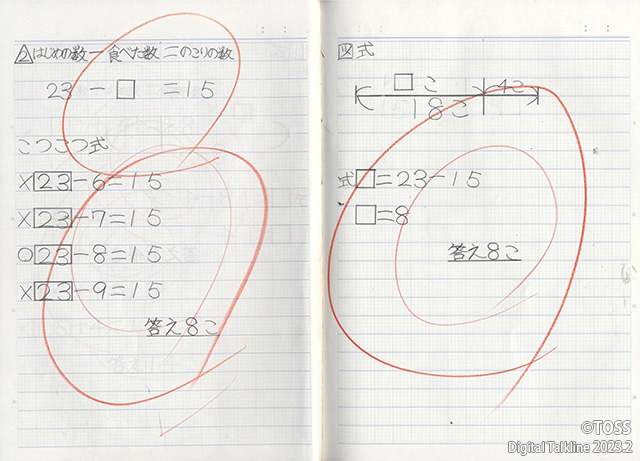 ② はじめの数－食べた数＝のこりの数
23 － □ ＝15
こつこつ式
×23－6＝15
×23－7＝15
○23－8＝15
×23－9＝15
答え8こ
図式
□こ 4こ
18こ
式□＝23－15
□＝8
答え8こ
©TOSS
Digital Talkline 2023.2